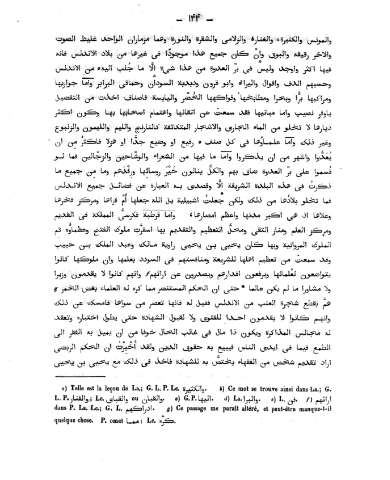 — ١٤٤ —
والمونس والكثيرة والفنار والزلامى والشقرة والنورة وهما مزماران الواحد غليظ الصوت
والاخر رقيقه والبوق وان كان جميع هذا موجودًا فى غيرها من بلاد الاندلس فانه
فيها اكثر واوجد وليس فى برّ العدوة من هذا شىء الّا ما جلب اليه من الاندلس
وحسبهم الدف واقوال واليرا وابو قرون ودبدبة السودان وحماقى البرابر وأمّا جواريها
ومراكبها برًّا وبحرا ومطابخها وفواكهها الخُضر واليابسة فاصناف اخذت من التفضيل
باوفر نصيب واما مبانيها فقد سمعت عن اتقانها واهتمام اصحابها بها وكون اكثر
ديارها لا تخلو من الماء الجارى والاشجار المتكاثفة كالنارنج والليم والليمون والزنبوع
وغير ذلك وأمّا علماؤها فى كل صنف رفيع او وضيع جدًّا او هزلًا فاكثر من ان
يُعَدُّوا واشهر من ان يذكروا وامّا ما فيها من الشعراء والوشّاحين والزجّالين فما لو
قسموا على برّ العدوة ضاق بهم والكلّ ينالون خير رؤسائها ورفدهم وما من جميع ما
ذكرت فى هذه البلدة الشريفة الّا وقصدى به العبارة عن فضائل جميع الاندلس
فما تخلو بلادها من ذلك ولكن جعلتُ اشبيلية بل الله جعلها اُمّ قراها ومركز فخرها
وعلاها اذ هى اكبر مدنها واعظم امصارها وامّا قرطبة فكرسى المملكة فى القديم
ومركز العلم ومنار التقى ومحلّ التعظيم والتقديم بها استقرت ملوك الفتح وعظماؤه ثم
الملوك المروانية وبها كان يحيى بن يحيى راوية مالك وعبد الملك بن حبيب
وقد سمعت من تعظيم اهلها للشريعة ومنافستهم فى السودد بعلمها وان ملوكها كانوا
يتواضعون لعُلمائها ويرفعون اقدارهم ويصدرون عن ارائهم وانهم كانوا لا يقدمون وزيرا
ولا مشاورا ما لم يكن عالما حتى ان الحكم المستنصر لما كره له العلماء بغض الخمر
همّ بقطع شجرة العنب من الاندلس فقيل له فانها تعصر من سواها فامسك عن ذلك
وانهم كانوا لا يقدمون احدا للفتوى ولا لقبول الشهادة حتى يطول اختباره وتعقد
له مجالس المذاكرة ويكون ذا مال فى غالب الحال خوفا من ان يميل به الفقر الى
الطمع فيما فى ايدى الناس فيبيع به حقوق الدين ولقد أُخبرتُ ان الحكم الربضى
اراد تقديم شخص من الفقهاء يختصّ به للشهادة فاخذ فى ذلك مع يحيى بن يحيى
a) Telle est la leçon de La.; G. L. P. Le. والكثيرة. b) Ce mot se trouve ainsi dans La.; G.
dans P. La. Le.; G. L. g) Ce passage me paraît altéré, et peut-être manque-t-il
quelque chose. P. omet مما; Le.